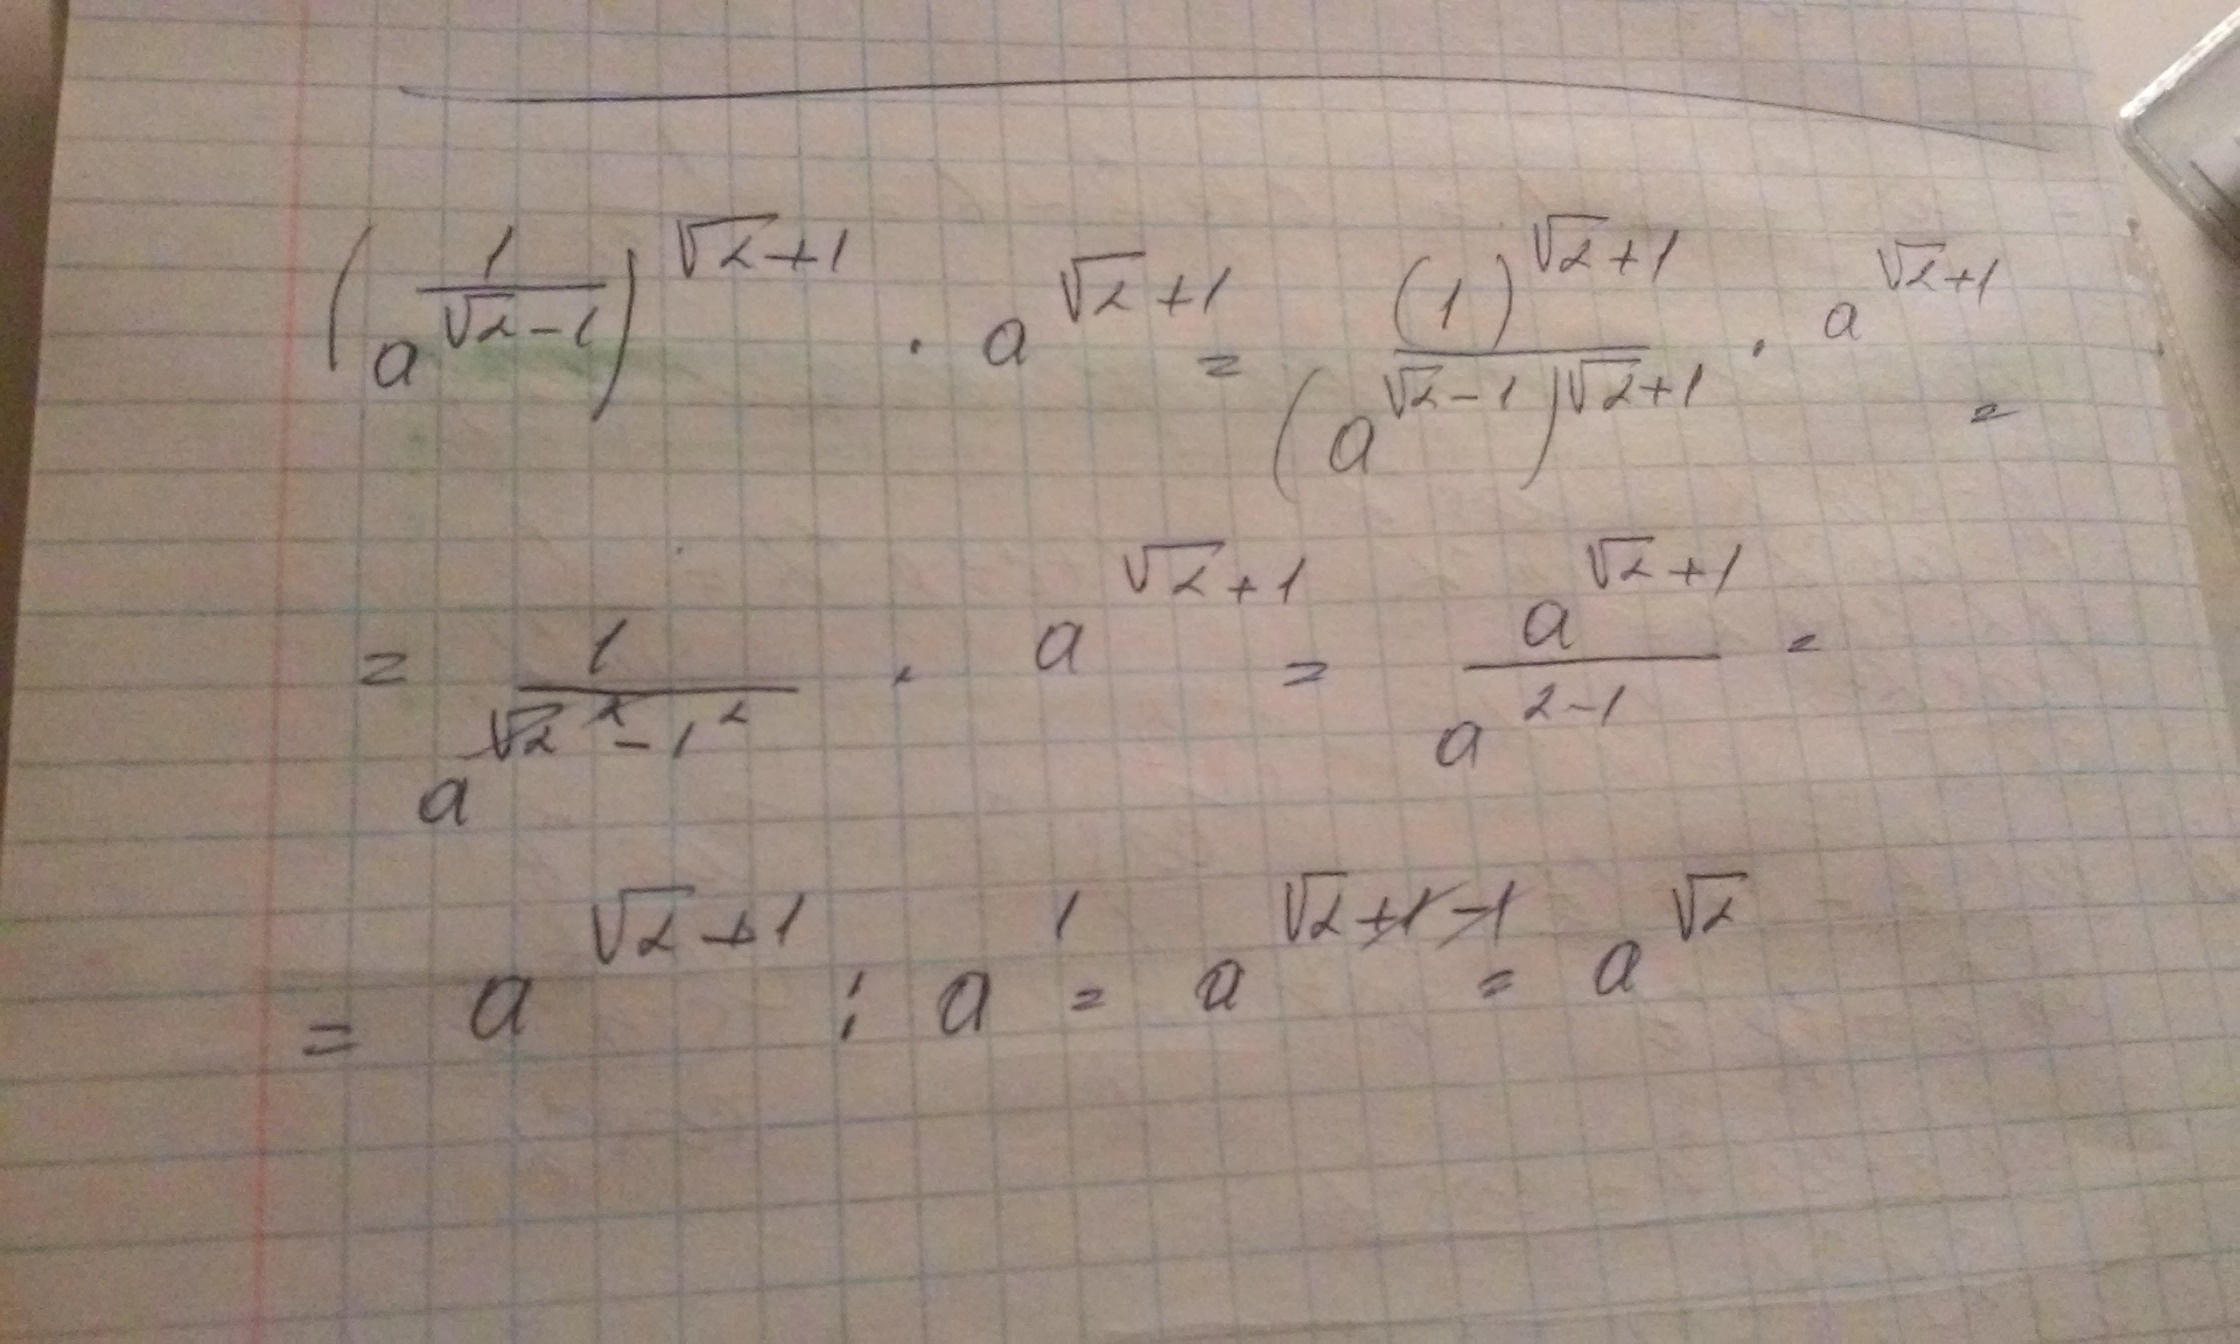 (1/a^(√2-1))^(√2+1) · a^(√2+1) = (1)^(√2+1)/(a^(√2-1))^(√2+1) · a^(√2+1) =
= 1/a^(√2²-1²) · a^(√2+1) = a^(√2+1)/a^(2-1) =
= a^(√2+1) : a^1 = a^(√2+1-1) = a^√2